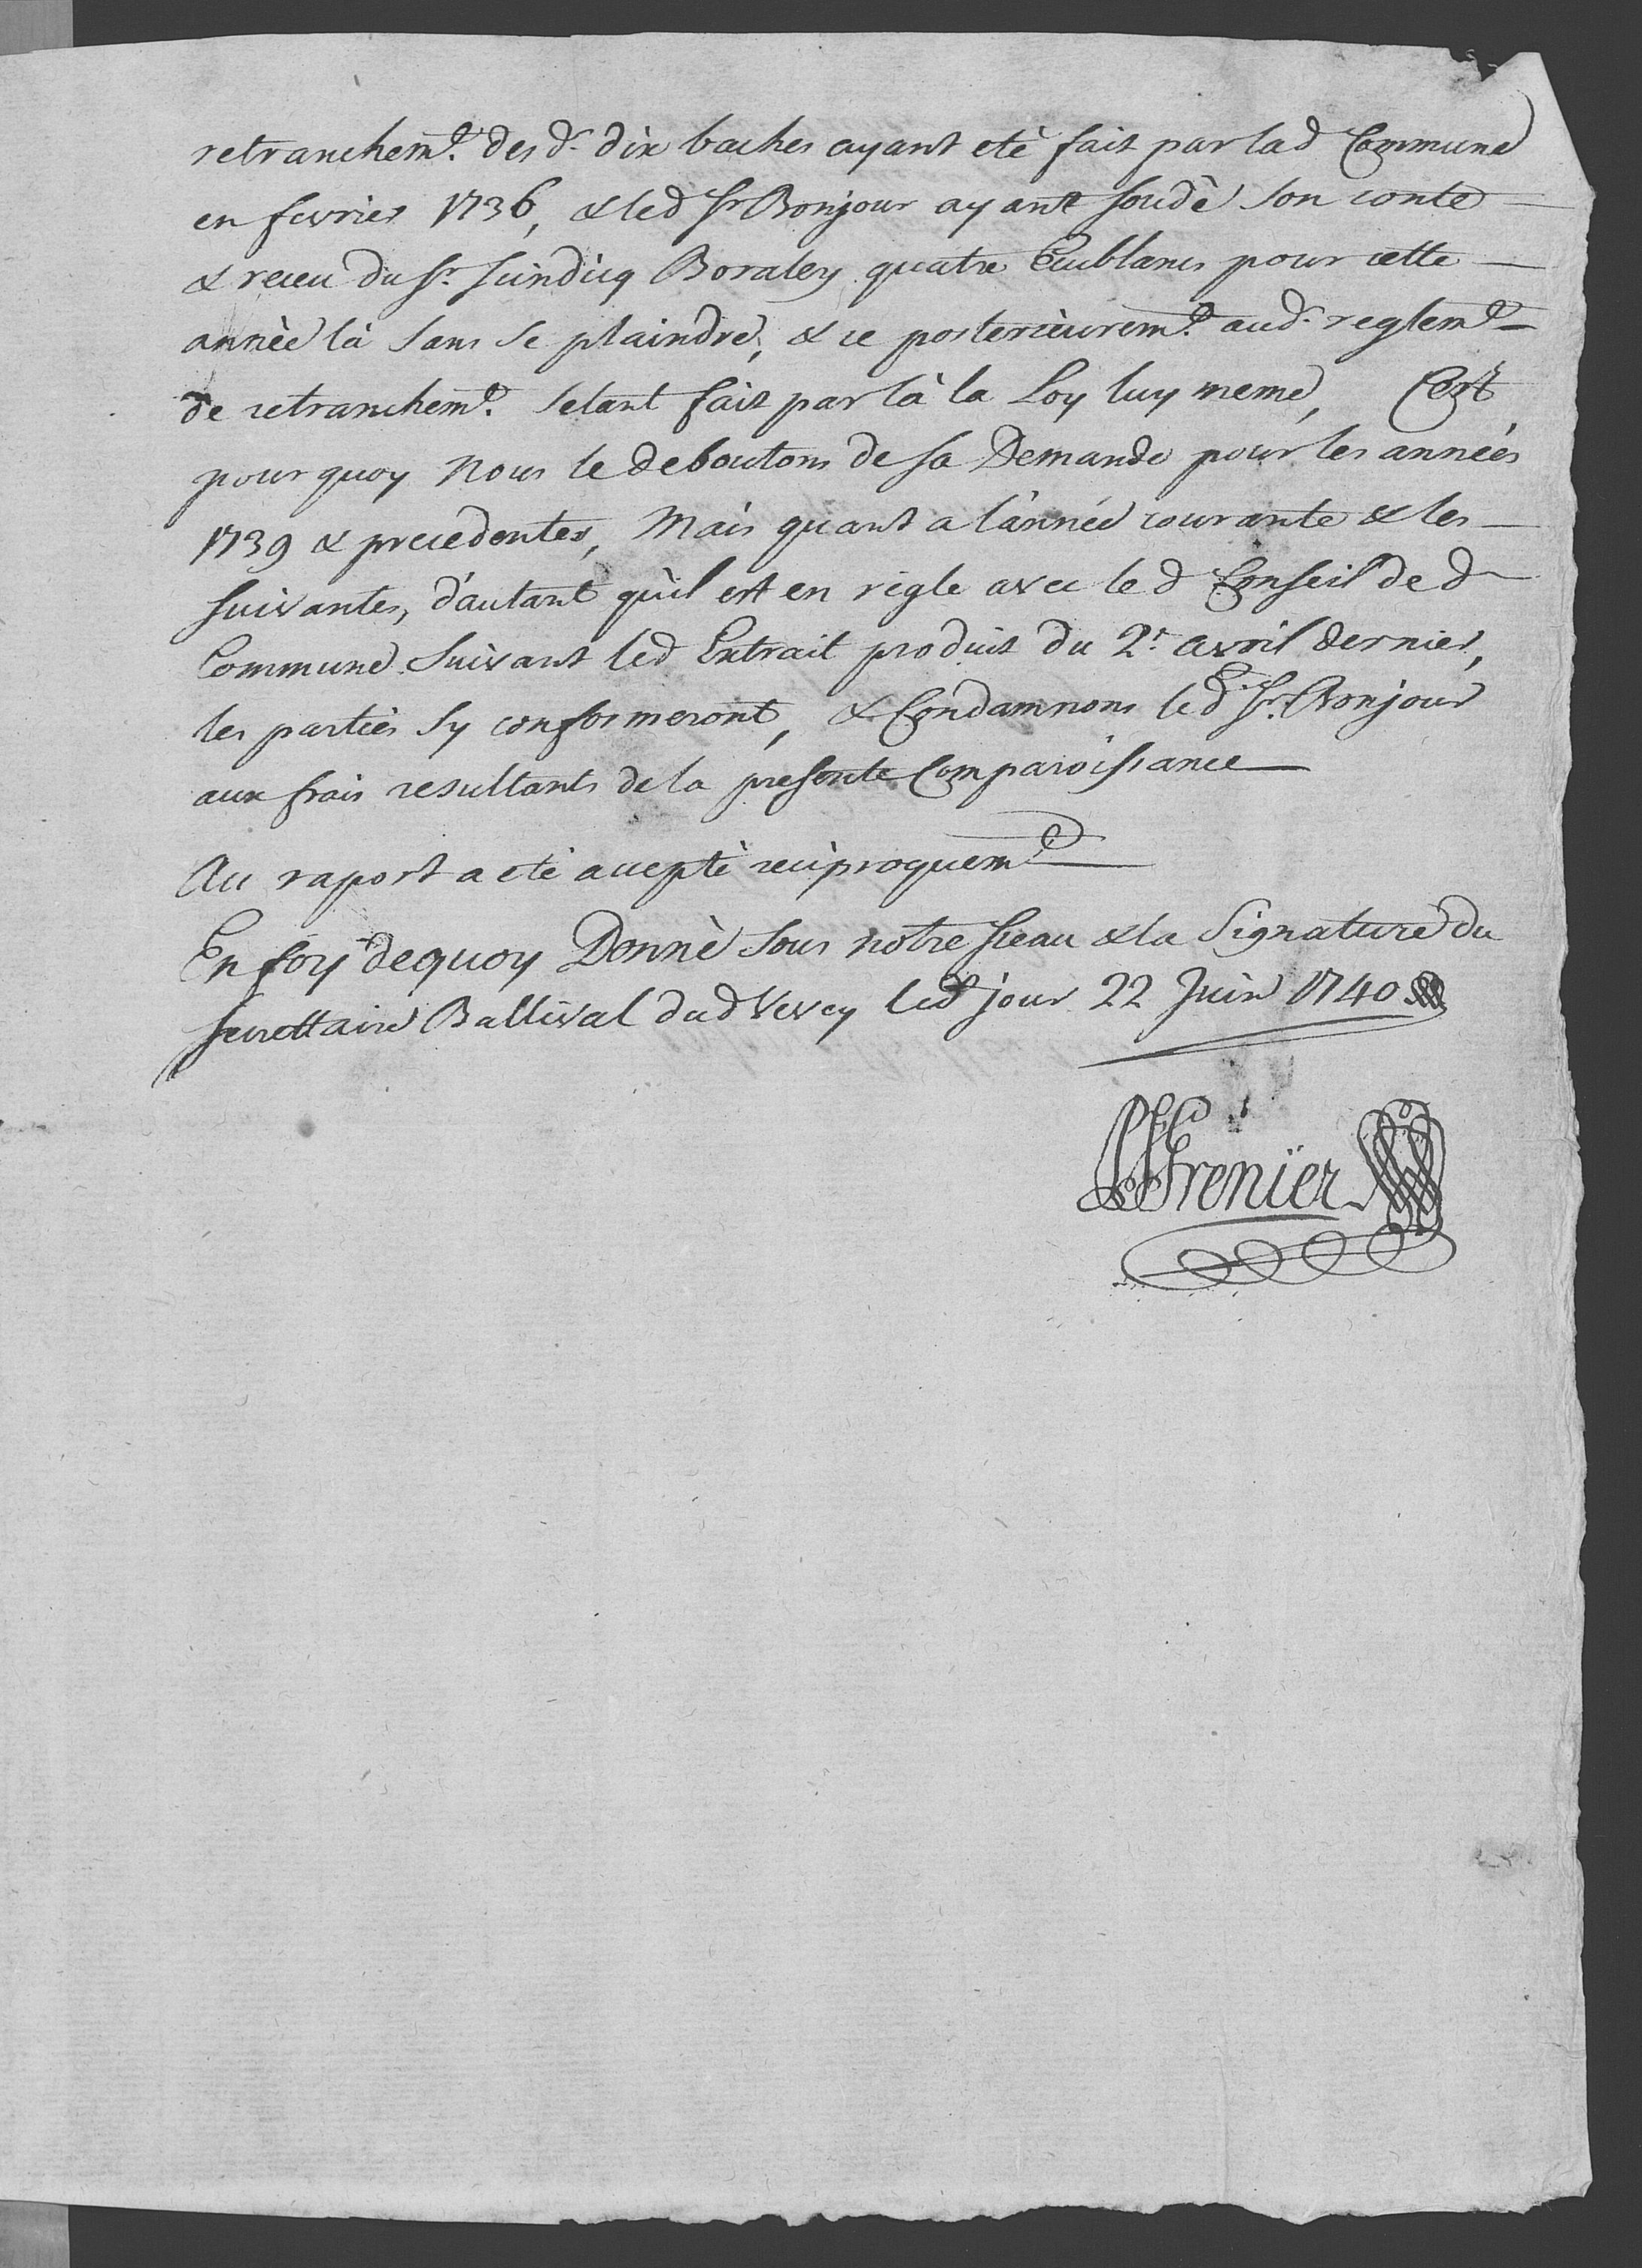 retranchem.t des d.s dix baches ayant eté fait par lad Commune
en fevrier 1736, & led Sr Bonjour ayant soudé son conte
& receu du Sr. Scindicq Boraley quatre Ecublancs pour cette
année là sans se plaindre, & ce posterieurem.t aud.t reglem.t
de retranchem.t setant fait par là la Loy luy meme, Cest
pourquoy Nous le deboutons de sa Demande pour les années
1739 & precedentes, Mais quant a l'année courante & les
suivantes, d'autant qu'il est en règle avec le d Conseil de d
Commune suivant led Extrait produit du 2.e avril dernier,
les parties sy conformeront, & Condamnons led.t Sr. Bonjour
aux frais resultants de la presente Comparoissance
Au raport a eté accepté reciproquem.t
En foy dequoy Donné sous notre sceau & la Signature du
secrettaire Ballival dud Vevey led jour 22 Juin 1740
Grenier